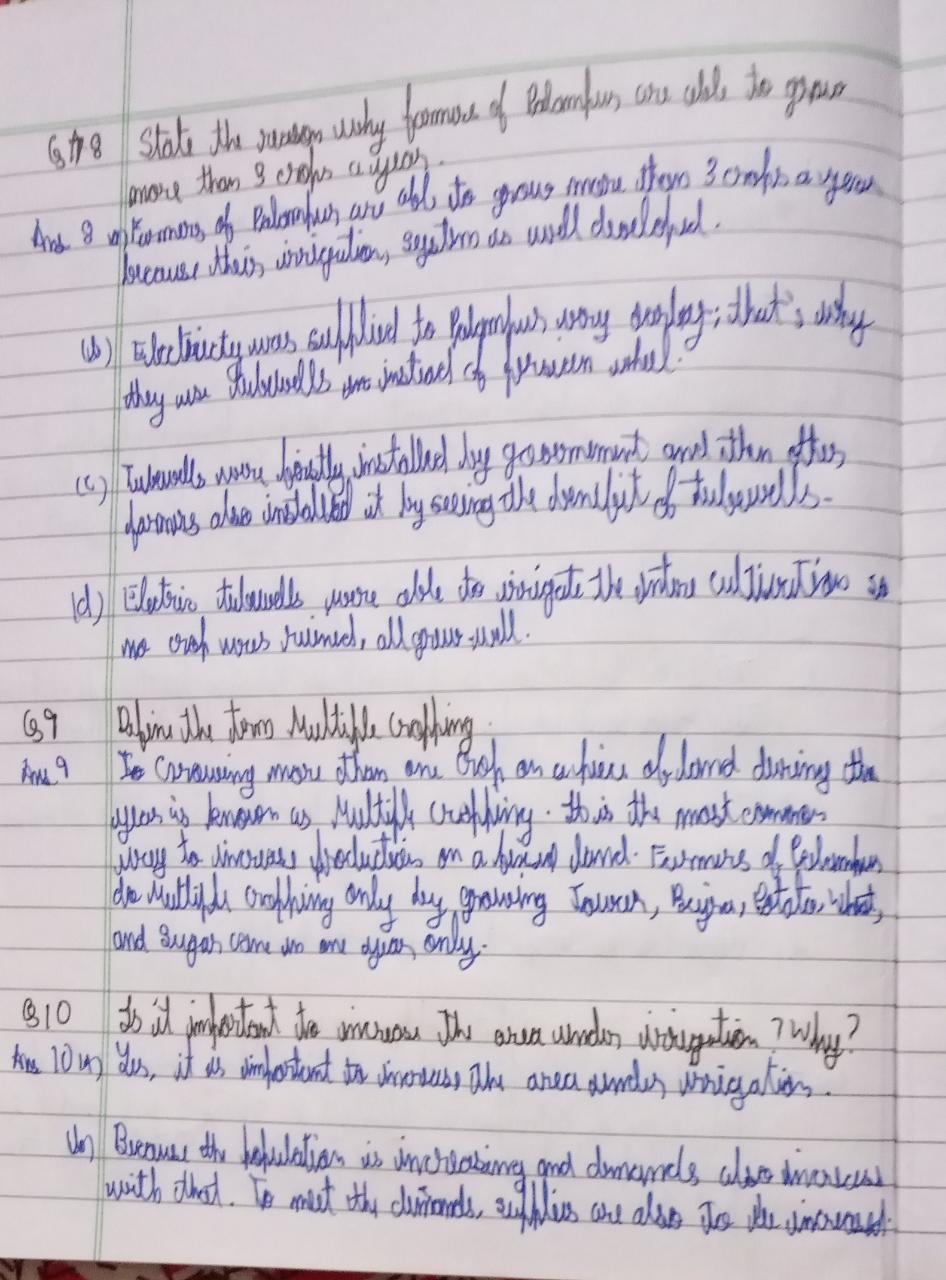 Q 8 State the reason why farmers of Palampur are able to grow
more than 3 crops a year.
Ans 8 a) Farmers of Palampur are able to grow more than 3 crops a year
because their irrigation system is well developed.
(b) Electricity was supplied to Palampur very ; that's why
they use tubewells instead of wheel.
(c) Tubewells were firstly installed by government and then other
farmers also installed it by seeing the benefit of tubewells.
(d) Electric tubewells were able to irrigate the entire so
no crop was ruined, all grew well.
Q9 Define the term Multiple Cropping.
Ans 9 Growing more than one crop on a piece of land during the
year is known as Multiple cropping. It is the most common
way to increase production on a fixed land. Farmers of Palampur
do Multiple cropping only by growing Jowar, Bajra, Potato, What,
and Sugar cane in one year only.
Q10 Is it important to increase the area under irrigation? Why?
Ans 10 a) Yes, it is important to increase the area under irrigation.
(b) Because the population is increasing and demands also increase
with that. To meet the demands, supplies are also to be increased.